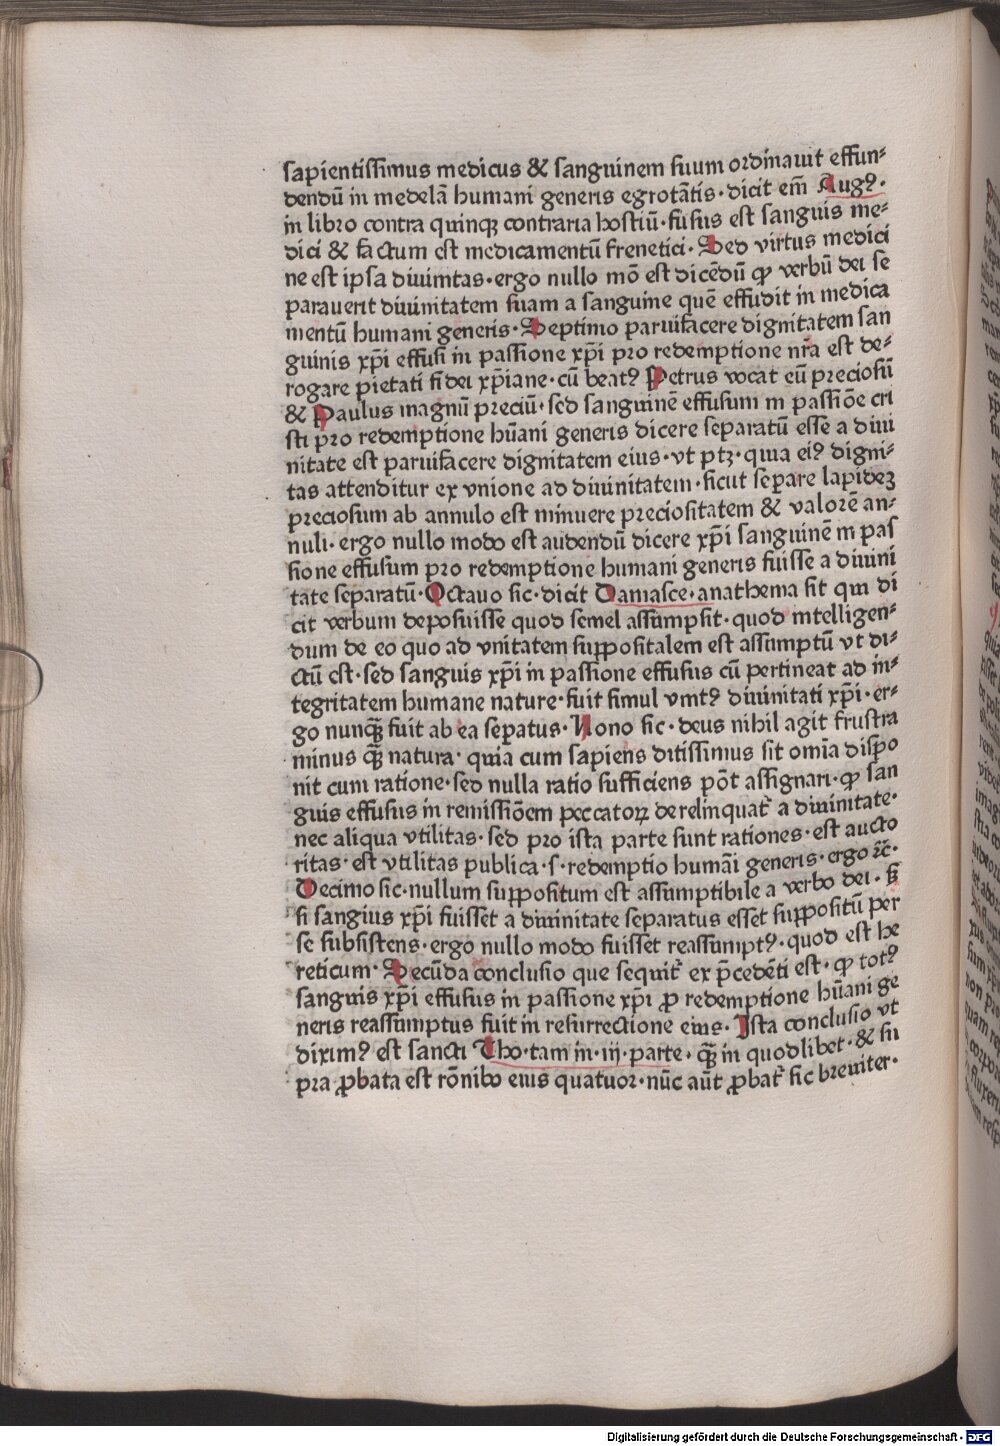 sapientissimus medicus & sanguinem suum ordinauit effun-
dendū in medelā humani generis egrotātis. dicit em̄ Augꝰ.
in libro contra quinqꝫ contraria hostiū. fusus est sanguis me-
dici & factum est medicamentū frenetici. Sed virtus medici
ne est ipsa diuinitas. ergo nullo mō est dicēdū ꝙ verbū dei se
parauerit diuinitatem suam a sanguine quē effudit in medica
mentū humani generis. Septimo paruifacere dignitatem san
guinis xp̄i effusi in passione xp̄i pro redemptione nr̄a est de-
rogare pietati fidei xp̄iane. cū beatꝰ Petrus vocat eū preciosū
& Paulus magnū preciū. sed sanguinē effusum in passiōe cri
sti pro redemptione hūani generis dicere separatū esse a diui
nitate est paruifacere dignitatem eius. vt ptꝫ. quia eiꝰ digni-
tas attenditur ex vnione ad diuinitatem. sicut separe lapideꝫ
preciosum ab annulo est minuere preciositatem & valorē an-
nuli. ergo nullo modo est audendū dicere xp̄i sanguinē in pas
sione effusum pro redemptione humani generis fuisse a diuini
tate separatū. Octauo sic. dicit Damasce. anathema sit qui di
cit verbum deposuisse quod semel assumpsit. quod intelligen-
dum de eo quo ad vnitatem suppositalem est assumptū vt di-
ctū est. sed sanguis xp̄i in passione effusus cū pertineat ad in-
tegritatem humane nature. fuit simul vnitꝰ diuinitati xp̄i. er-
go nunqꝫ̄ fuit ab ea sepatus. Nono sic. deus nihil agit frustra
minus qꝫ̄ natura. quia cum sapiens ditissimus sit omīa dispo
nit cum ratione. sed nulla ratio sufficiens pōt assignari. ꝙ san
guis effusus in remissiōem peccatoꝝ derelinquat᷑ a diuinitate.
nec aliqua vtilitas. sed pro ista parte sunt rationes. est aucto
ritas. est vtilitas publica. s. redemptio humāi generis. ergo ⁊c̄.
Decimo sic. nullum suppositum est assumptibile a verbo dei. sꝫ
si sangius xp̄i fuisset a diuinitate separatus esset suppositū per
se subsistens. ergo nullo modo fuisset reassumptꝰ. quod est he
reticum. Secūda conclusio que sequit᷑ ex p̄cedēti est. ꝙ totꝰ
sanguis xp̄i effusus in passione xp̄i ꝓ redemptione hūani ge
neris reassumptus fuit in resurrectione eius. Ista conclusio vt
diximꝰ est sancti Tho. tam in. iij. parte. qꝫ̄ in quodlibet. & su
pra ꝓbata est rōnibo eius quatuor. nūc aūt ꝓbat᷑ sic breuiter.
Digitalisierung gefördert durch die Deutsche Forschungsgemeinschaft - DFG